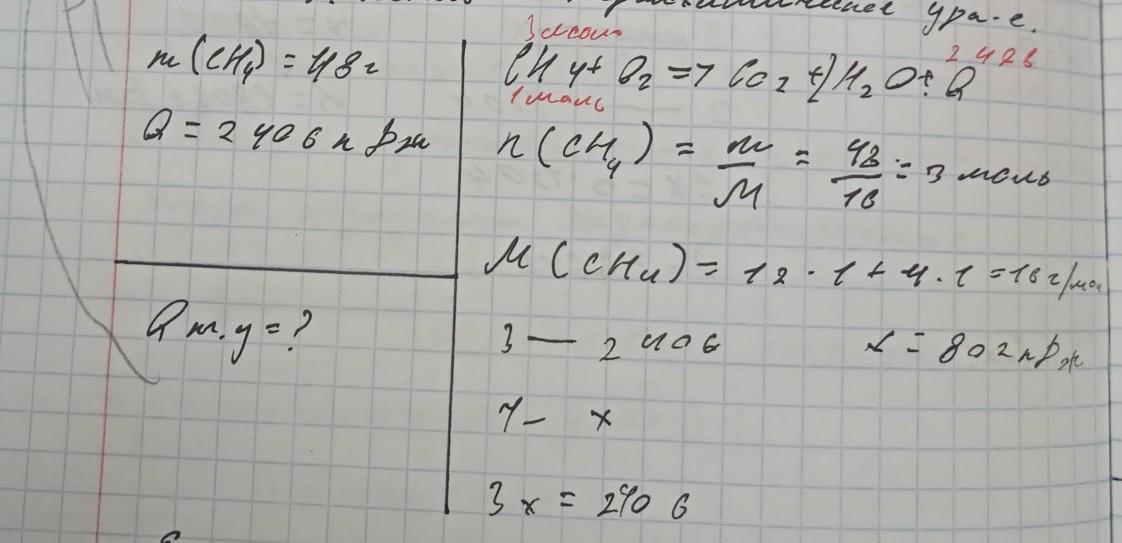 ура-е.
m (CH4) = 48 г
Q = 2406 кДж
Q т.у = ?
3 моль
2406
CH4 + O2 => CO2 + H2O + Q
1 моль
n (CH4) = m/M = 48/16 = 3 моль
M (CH4) = 12 · 1 + 4 · 1 = 16 г/мол
3 — 2406 x = 802 кДж
1 – x
3x = 2406